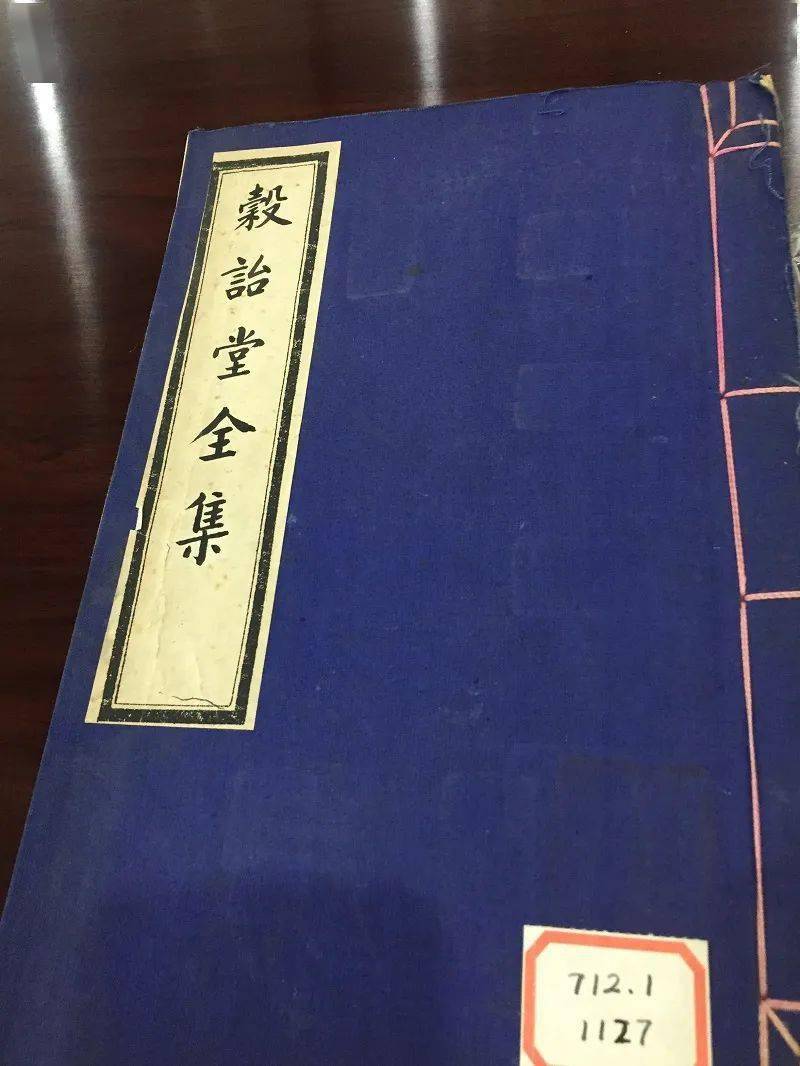 榖詒堂全集
712.1
1127